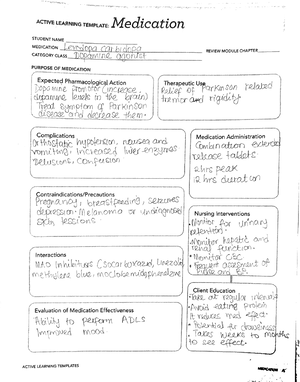 ACTIVE LEARNING TEMPLATE: Medication
STUDENT NAME
MEDICATION Levodopa carbidopa
REVIEW MODULE CHAPTER
CATEGORY CLASS Dopamine agonist
PURPOSE OF MEDICATION
Expected Pharmacological Action
Dopamine promotor (increase
dopamine levels in the brain)
Treat symptom of Parkinson
disease and decrease them.
Therapeutic Use
Relief of Parkinson related
tremor and rigidity
Complications
Orthostatic hypotension, nausea and
vomiting, increased liver enzymes
Delusions, Confusion
Medication Administration
Combination extended
release tablets
2 hrs peak
12 hrs duration
Contraindications/Precautions
Pregnancy, breastfeeding, seizures
depression, Melanoma or undiagnosed
skin lesions
Nursing Interventions
Monitor for urinary
retention
Monitor hepatic and
renal function
Monitor CBC
assessment of
Interactions
MAO Inhibitors (isocarboxazid, linezolid
methylene blue, moclobemide
Client Education
Take at regular interval
Avoid eating
It reduces med effect
Potential for drowsiness
Takes weeks to months
to see effect.
Evaluation of Medication Effectiveness
Ability to perform ADLs
Improved mood
ACTIVE LEARNING TEMPLATES
MEDICATION